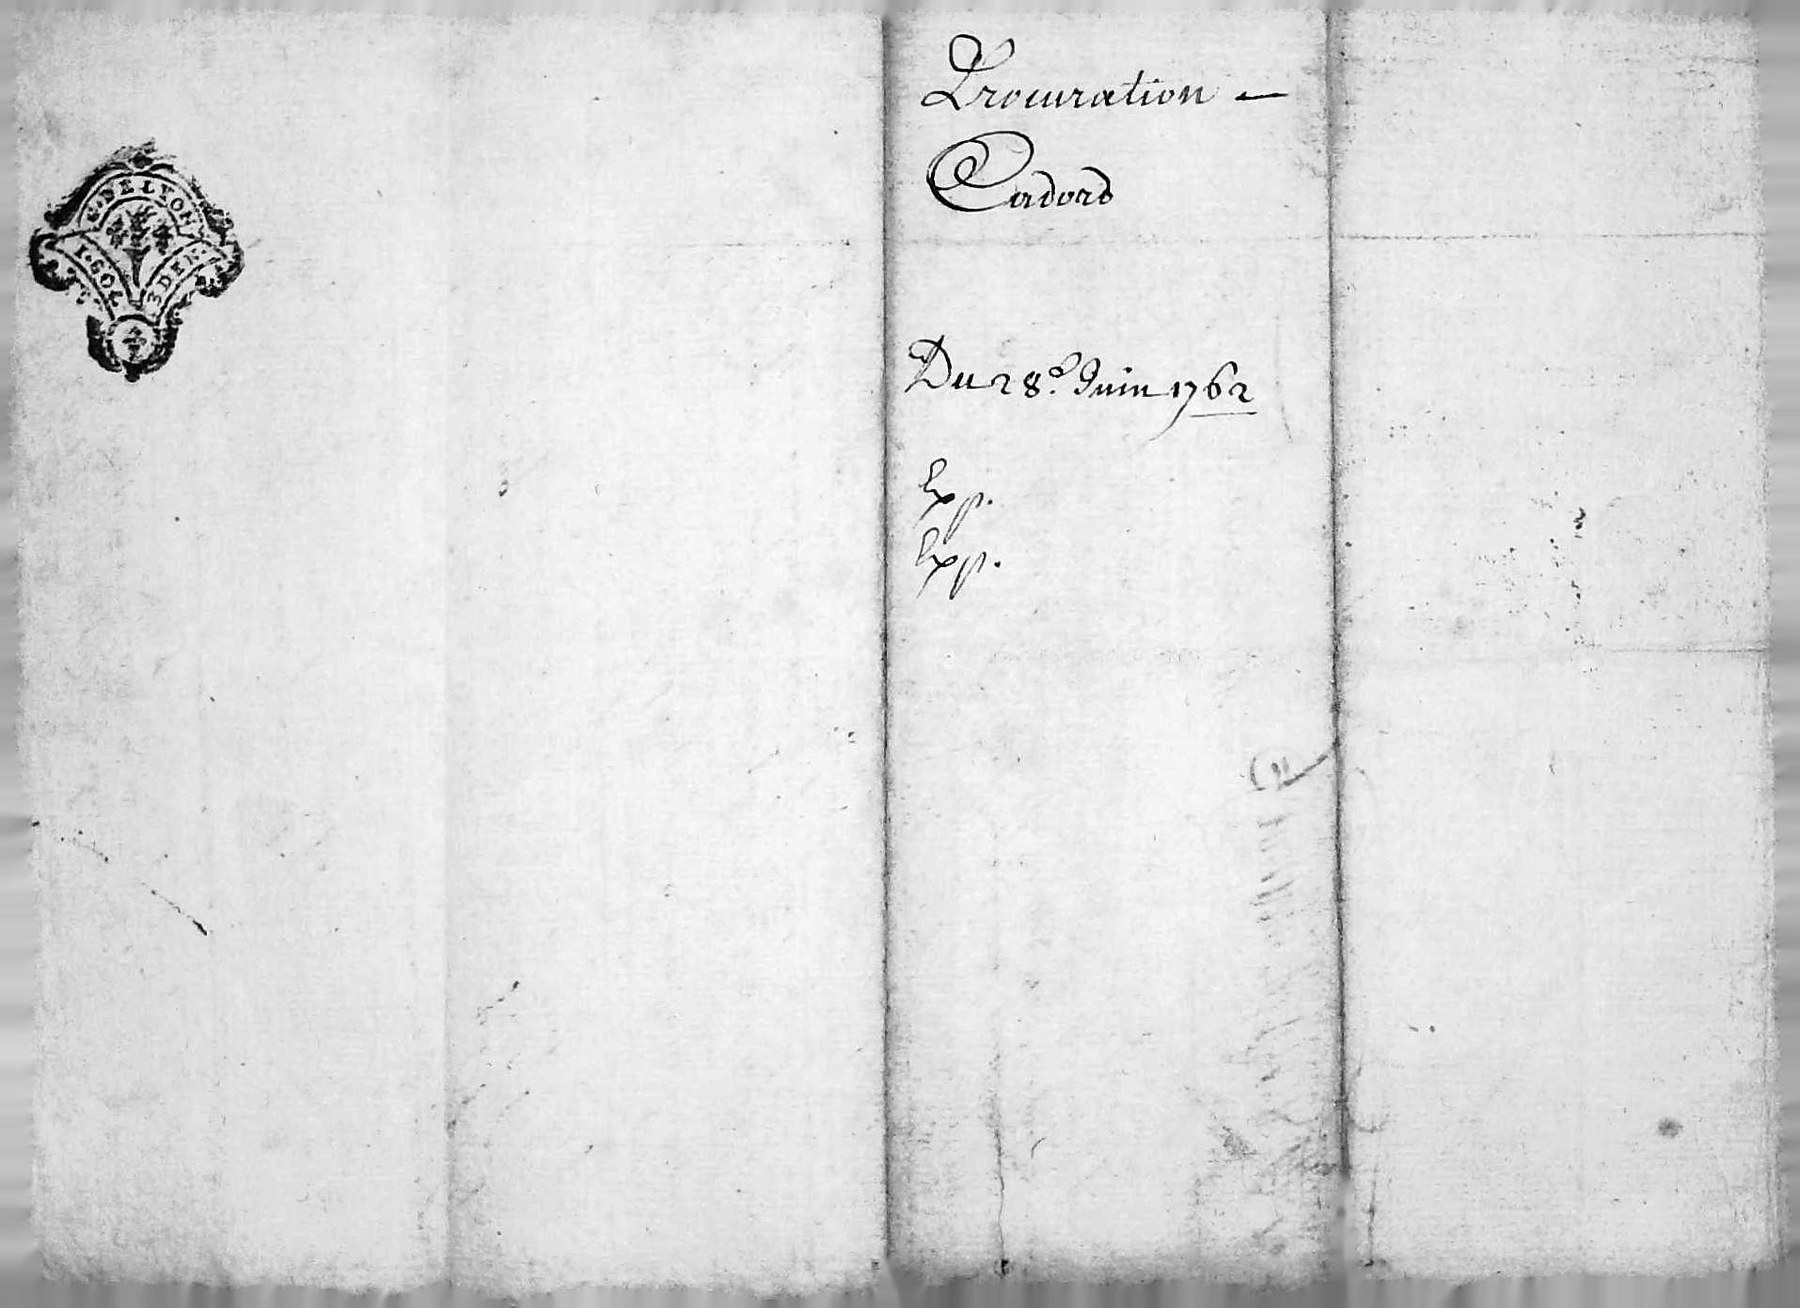 G. DE LYON
1. SOL
3 DEN.
Procuration —
Cadord
Du 28.e Juin 1762
Exp.
Exp.